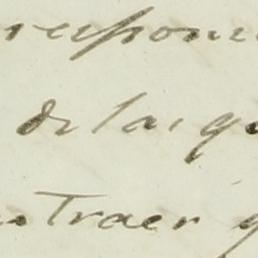 respon
de las q
traer q